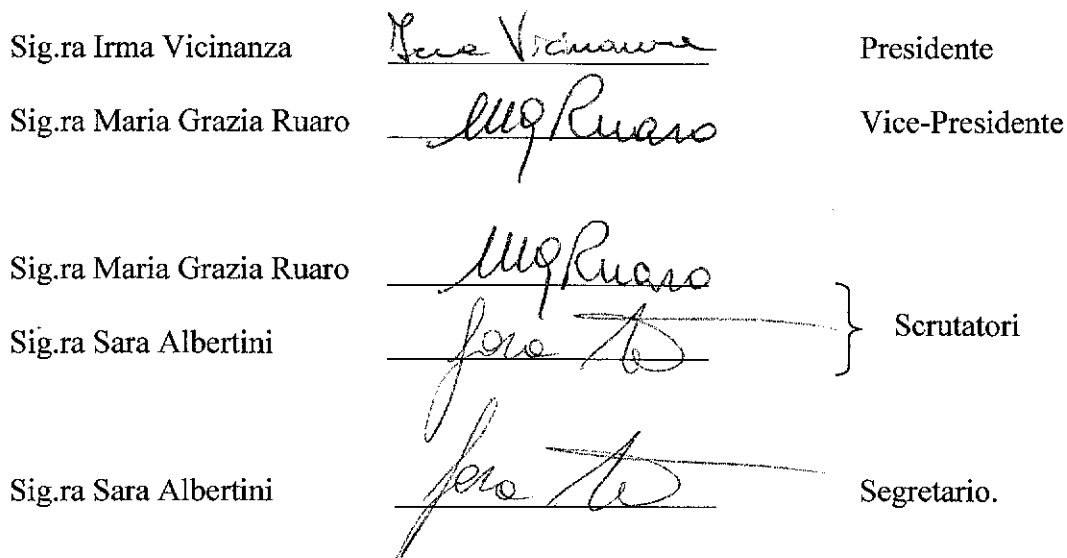 Sig.ra Irma Vicinanza Irma Vicinanza Presidente
Sig.ra Maria Grazia Ruaro MGRuaro Vice-Presidente
Sig.ra Maria Grazia Ruaro MGRuaro
Scrutatori
Sig.ra Sara Albertini Sara
Sig.ra Sara Albertini Sara Segretario.